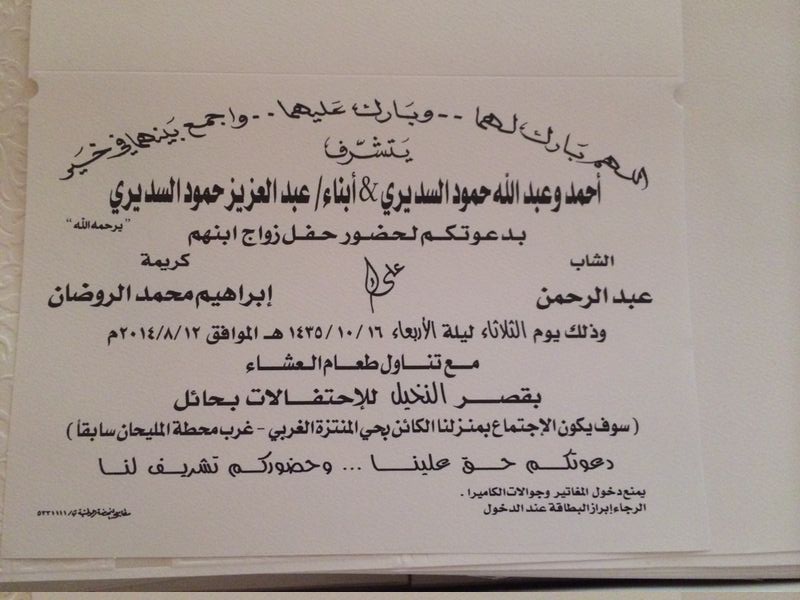 اللهم بَارك لهما .. وبَارك عَليهما .. واجمع بَينهما في خَير
يَتشرّف
أحمد وعبد الله حمود السديري & أبناء/ عبد العزيز حمود السديري
"يرحمه الله"
بدعوتكم لحضور حفل زواج ابنهم
الشاب
على
كريمة
عبد الرحمن
إبراهيم محمد الروضان
وذلك يوم الثلاثاء ليلة الأربعاء ١٤٣٥/١٠/١٦ هـ الموافق ٢٠١٤/٨/١٢م
مع تناول طعام العشاء
بقصر النخيل للإحتفالات بحائل
(سوف يكون الإجتماع بمنزلنا الكائن بحي المنتزة الغربي - غرب محطة المليحان سابقاً)
دعوتكم حق علينا ... وحضوركم تشريف لنا
يمنع دخول المفاتير وجوالات الكاميرا .
الرجاء إبراز البطاقة عند الدخول
٥٣٣١١١١